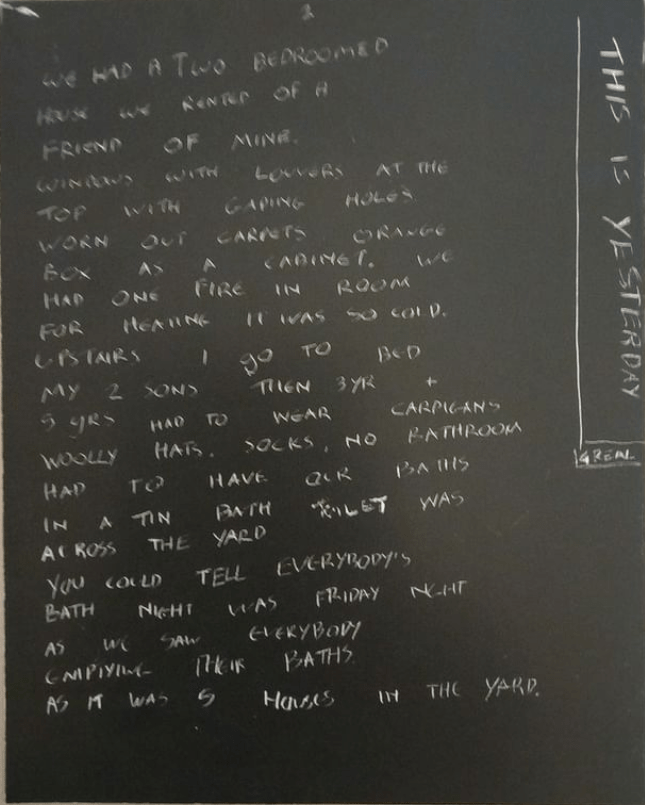 2
WE HAD A TWO BEDROOMED
HOUSE WE RENTED OF A
FRIEND OF MINE.
WINDOWS WITH LOUVERS AT THE
TOP WITH GAPING HOLES
WORN OUT CARPETS ORANGE
BOX AS A CABINET. WE
HAD ONE FIRE IN ROOM
FOR HEATING IT WAS SO COLD.
UPSTAIRS I go TO BED
MY 2 SONS THEN 3YR +
5 YRS HAD TO WEAR CARDIGANS
WOOLLY HATS. SOCKS, NO BATHROOM
HAD TO HAVE OUR BATHS
IN A TIN BATH TOILET WAS
ACROSS THE YARD
YOU COULD TELL EVERYBODY'S
BATH NIGHT WAS FRIDAY NGHT
AS WE SAW EVERYBODY
EMPTYING THEIR BATHS.
AS IT WAS 5 HOUSES IN THE YARD.
THIS IS YESTERDAY
4REAL